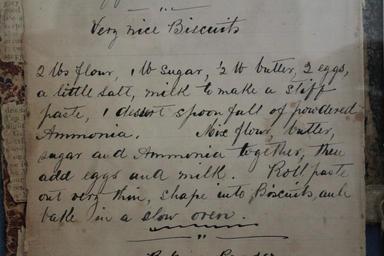 Very nice Biscuits
2 lbs flour, 1 lb sugar, ½ lb butter, 2 eggs,
a little salt, milk to make a stiff
paste, 1 desert spoonfull of powdered
Ammonia. Mix flour, butter,
sugar and Ammonia together, then
add eggs and milk. Roll paste
out very thin, shape into Biscuits, and
bake in a slow oven.